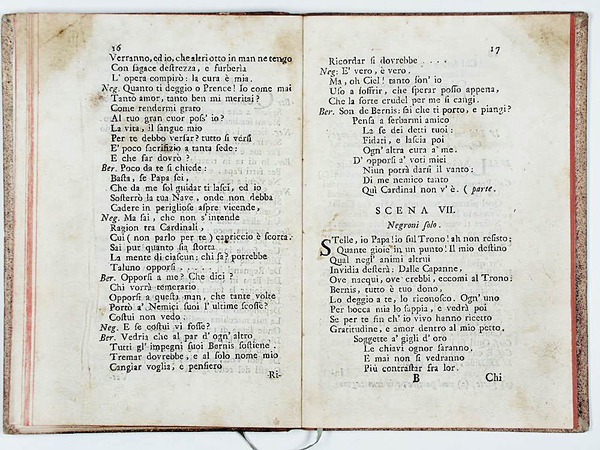 16
Verranno, ed io, che altri otto in man ne tengo
Con sagace destrezza, e furberia
L' opera compirò: la cura è mia.
Neg. Quanto ti deggio o Prence! Io come mai
Tanto amor, tanto ben mi meritai?
Come rendermi grato
Al tuo gran cuor pos' io?
La vita, il sangue mio
Per te debbo versar? tutto si versi
E' poco sacrifizio a tanta sede:
E che far dovrò?
Ber. Poco da te si chiede:
Basta, se Papa sei,
Che da me sol guidar ti lasci, ed io
Sosterrò la tua Nave, onde non debba
Cadere in perigliose aspre vicende,
Neg. Ma sai, che non s'intende
Ragion tra Cardinali,
Cui (non parlo per te) capriccio è scorta.
Sai pur quanto sia storta
La mente di ciascun: chi sa? potrebbe
Taluno opporsi, ....
Ber. Opporsi a me? Che dici?
Chi vorrà temerario
Opporsi a questa man, che tante volte
Portò a' Nemici suoi l' ultime scosse?
Costui non vedo:
Neg. E se costui vi fosse?
Ber. Vedria che al par d' ogn' altro
Tutti gl' impegni suoi Bernis sostiene.
Tremar dovrebbe, e al solo nome mio
Cangiar voglia, e pensiero
Ri-
17
Ricordar si dovrebbe ....
Neg: E' vero, è vero.
Ma, oh Ciel! tanto son' io
Uso a soffrir, che sperar posso appena,
Che la sorte crudel per me si cangi.
Ber. Son de Bernis: sai che ti porto, e piangi?
Pensa a serbarmi amico
La fe dei detti tuoi:
Fidati, e lascia poi
Ogn' altra cura a' me.
D' opporsi a' voti miei
Niun potrà darsi il vanto:
Di me nemico tanto
Quì Cardinal non v'è. ( parte.
SCENA VII.
Negroni solo.
STelle, io Papa! io sul Trono! ah non resisto:
Quante gioie in un punto! Il mio destino
Qual negl' animi altrui
Invidia desterà: Dalle Capanne,
Ove nacqui, ove crebbi, eccomi al Trono:
Bernis, tutto è tuo dono,
Lo deggio a te, lo riconosco. Ogn' uno
Per bocca mia lo sappia, e vedrà poi
Se per te fin ch' io vivo hanno ricetto
Gratitudine, e amor dentro al mio petto,
Soggette a' gigli d' oro
Le chiavi ognor saranno,
E mai non si vedranno
Più contrastar fra lor.
B
Chi